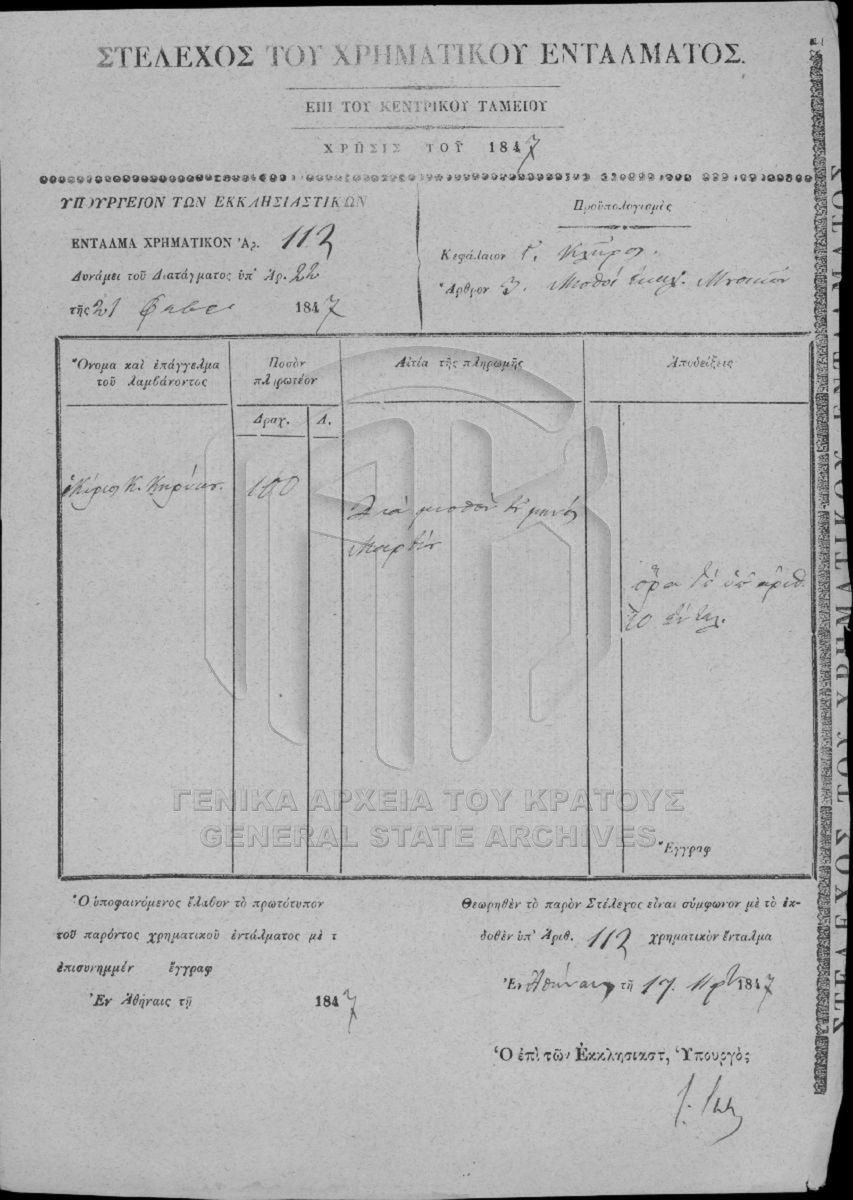 ΣΤΕΛΕΧΟΣ ΤΟΥ ΧΡΗΜΑΤΙΚΟΥ ΕΝΤΑΛΜΑΤΟΣ.
ΕΠΙ ΤΟΥ ΚΕΝΤΡΙΚΟΥ ΤΑΜΕΙΟΥ
ΧΡΗΣΙΣ ΤΟΥ 1847
ΥΠΟΥΡΓΕΙΟΝ ΤΩΝ ΕΚΚΛΗΣΙΑΣΤΙΚΩΝ
ΕΝΤΑΛΜΑ ΧΡΗΜΑΤΙΚΟΝ Ἀρ. 113
Δυνάμει τοῦ Διατάγματος ὑπ' Ἀρ. 22
τῆς 21 1847
Προϋπολογισμὸς
Κεφάλαιον Κλῆρος.
Ἄρθρον 3. Μισθοὶ
Ὄνομα καὶ ἐπάγγελμα τοῦ λαμβάνοντος
Ποσὸν πληρωτέον
Δραχ. Λ.
Αἰτία τῆς πληρωμῆς
Ἀποδείξεις
ὁ Κύριος Κ.
100
Διὰ μισθὸν τοῦ μηνὸς
Μαρτίου
ὅρα τὸ ὑπ' ἀριθ.
70 ἔνταλ.
ΓΕΝΙΚΑ ΑΡΧΕΙΑ ΤΟΥ ΚΡΑΤΟΥΣ
GENERAL STATE ARCHIVES
Ἔγγραφ
Ὁ ὑποφαινόμενος ἔλαβον τὸ πρωτότυπον
τοῦ παρόντος χρηματικοῦ ἐντάλματος μὲ τ
ἐπισυνημμέν ἔγγραφ
Ἐν Ἀθήναις τῇ 1847
Θεωρηθὲν τὸ παρὸν Στέλεχος εἶναι σύμφωνον μὲ τὸ ἐκ-
δοθὲν ὑπ' Ἀριθ. 113 χρηματικὸν ἔνταλμα
Ἐν Ἀθήναις τῇ 17. 1847
Ὁ ἐπὶ τῶν Ἐκκλησιαστ, Ὑπουργὸς
ΣΤΕΛΕΧΟΣ ΤΟΥ ΧΡΗΜΑΤΙΚΟΥ ΕΝΤΑΛΜΑΤΟΣ